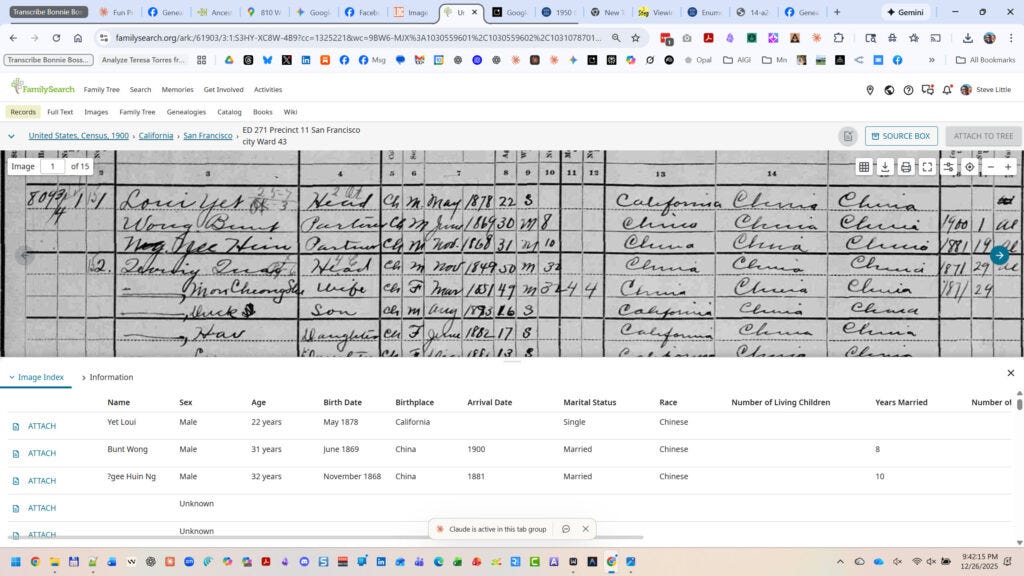 Transcribe Bonnie Boss
Fun P
Genea
Ances
810 W
Google
Faceb
Image
Ur
Googl
1950
New T
Viewi
Enum
14-a2
Genea
Gemini
familysearch.org/ark:/61903/3:1:S3HY-XC8W-4B9?cc=1325221&wc=9BW6-MJX%3A1030559601%2C1030559602%2C1031078701...
Transcribe Bonnie Boss...
Analyze Teresa Torres fr...
Msg
Opal
AIGI
Mn
All Bookmarks
FamilySearch
Family Tree
Search
Memories
Get Involved
Activities
Steve Little
Records
Full Text
Images
Family Tree
Genealogies
Catalog
Books
Wiki
United States, Census, 1900 › California › San Francisco › ED 271 Precinct 11 San Francisco
city Ward 43
SOURCE BOX
ATTACH TO TREE
Image 1 of 15
2 3 4 5 6 7 8 9 10 11 12 13 14
Loui Yet Head Ch M May 1878 22 S California China China
Wong Bunt Partner Ch M June 1869 30 M 8 China China China 1900 1 al
Ng Gee Huin Partner Ch M Nov. 1868 31 M 10 China China China 1881 19 al
2. Quay Head Ch M Nov 1849 50 M 32 China China China 1871 29 al
—, Mon Cheong Wife Ch F Mar 1851 47 M 32 4 4 China China China 1871 29
—, Duck Son Ch M Aug 1883 16 S California China China
—, Hav Daughter Ch F June 1882 17 S California China China
Image Index
Information
Name Sex Age Birth Date Birthplace Arrival Date Marital Status Race Number of Living Children Years Married Number of
ATTACH Yet Loui Male 22 years May 1878 California Single Chinese
ATTACH Bunt Wong Male 31 years June 1869 China 1900 Married Chinese 8
ATTACH ?gee Huin Ng Male 32 years November 1868 China 1881 Married Chinese 10
ATTACH Unknown
ATTACH Unknown
Claude is active in this tab group
9:42:15 PM
12/26/2025